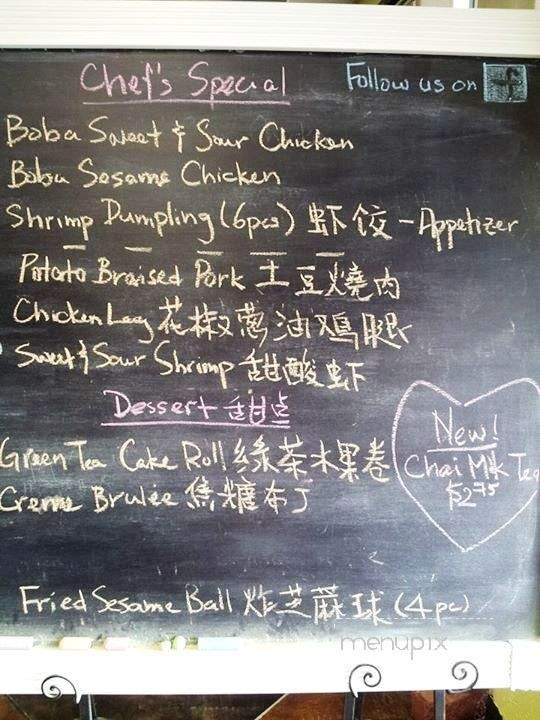 Chef's Special
Follow us on f
Boba Sweet & Sour Chicken
Boba Sesame Chicken
Shrimp Dumpling (6pcs) 虾饺 - Appetizer
Potato Braised Pork 土豆燒肉
Chicken Leg 花椒蔥油鸡腿
Sweet & Sour Shrimp 甜酸虾
Dessert 甜点
New!
Green Tea Cake Roll 綠茶木果卷
Chai Milk Tea
Creme Brulée 焦糖布丁
$2.75
Fried Sesame Ball 炸芝蔴球 (4pc)
menupix